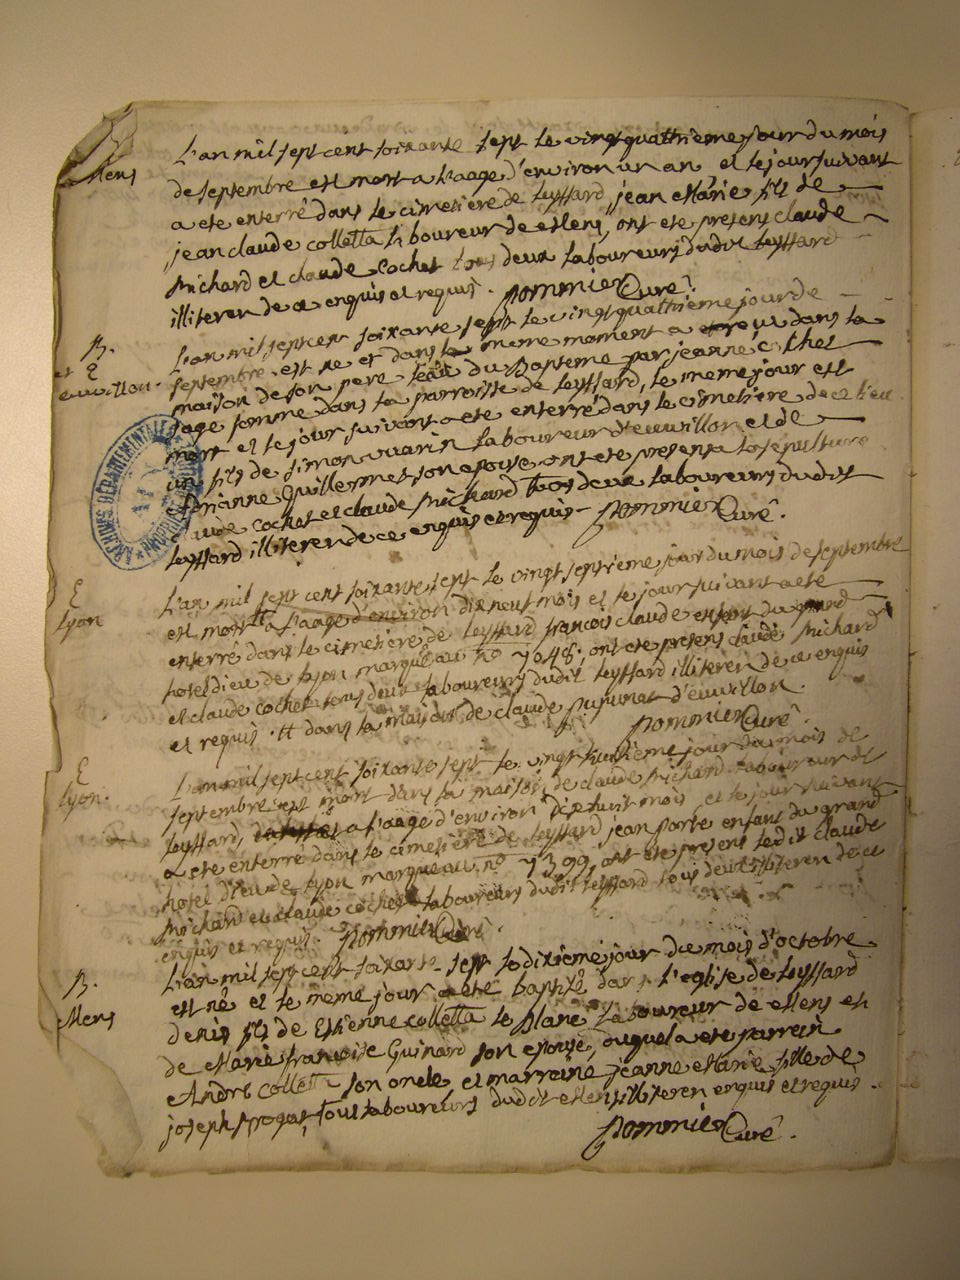 B.
Mens
L'an mil sept cent soixante sept le vingtquattrieme jour du mois
de septembre est mort a l'aage d'environ un an et le jour suivant
a ete enterré dans le cimetiere de leyssard, jean Marie fils de
jean claude colletta laboureur de Mens, ont ete presens claude
Michard et claude Cochet tous deux laboureurs dudit leyssard
illiteren de ce enquis et requis. pommier Curé.
B.
et E
euvillon.
L'an mil sept cen soixante sept le vingtquattrieme jour de
septembre est ne et dans le meme moment a eu dans la
maison de son pere l'eau du Bapteme par jeanne cochet
sage femme dans la parroisse de leyssard, le meme jour est
mort et le jour suivant a ete enterré dans le cimetiere de ce lieu
un fils de simon laboureur d'euvillon et de
Guillermet son epouse ont ete presens a la sepulture
claude cochet et claude Michard tous deux laboureurs dudit
leyssard illiteren de ce enquis et requis - pommier Curé.
E
Lyon
L'an mil sept cent soixante sept le vingt septieme jour du mois de septembre
est mort # a l'aage d'environ dix neuf mois et le jour suivant a ete
enterré dans le cimetiere de leyssard françois claude enfant du grand
hotel dieu de lyon marqué au no 7048; ont ete presens claude Michard
et claude cochet tous deux laboureurs dudit leyssard illiteren de ce enquis
et requis. # dans la maison de claude d'euvillon.
pommier Curé.
E
Lyon.
L'an mil sept cent soixante sept le vingt huitieme jour du mois de
septembre est mort dans la maison de claude Michard laboureur de
leyssard, a l'aage d'environ dix huit mois, et le jour suivant
a ete enterré dans le cimetiere de leyssard jean enfant du grand
hotel dieu de Lyon marqué au no 7399, ont ete presens ledit claude
Michard et claude cochet laboureurs dudit leyssard tous deux illiteren de ce
enquis et requis. pommier Curé.
B.
Mens
L'an mil sept cent soixante sept le dixieme jour du mois d'octobre
est né et le meme jour a eté baptisé dans l'eglise de leyssard
denis fils de Estienne colletta le blanc laboureur de Mens et
de Marie françoise Guinard son epouse, auquel a ete parrain
Andre colletta son oncle, et marraine jeanne Marie fille de
joseph tous laboureurs dudit Mens illiteren enquis et requis.
pommier Curé.
ARCHIVES DÉPARTEMENTALES